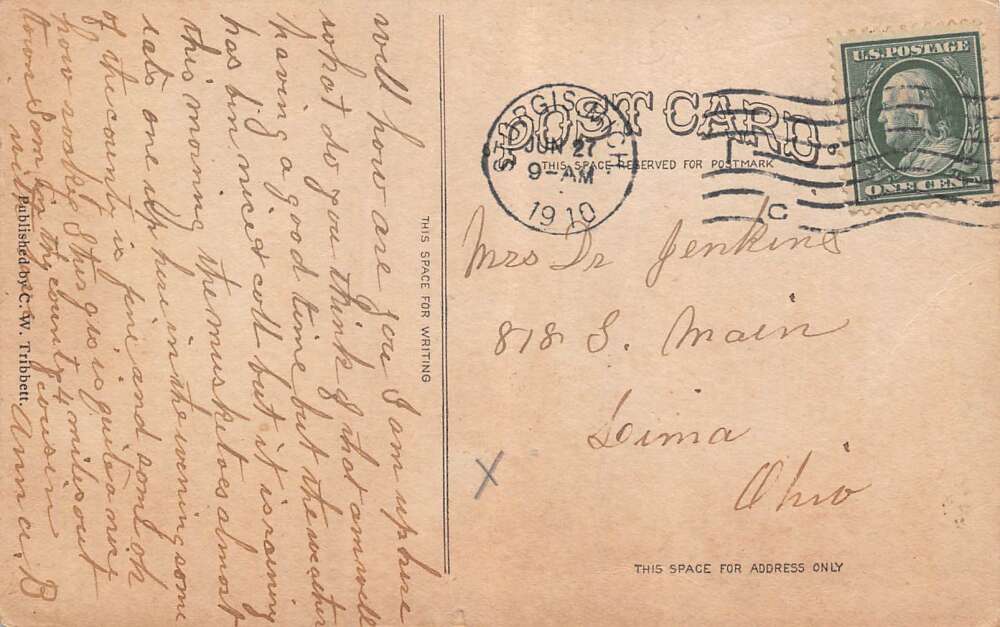 well how are you I am up here
what do you think of that am well
having a good time but the weather
has bin nice & cold but it is raining
this morning the musketoes almost
eats one up here in the evening some
of the county is fine and some oh
how sandy Sturgis is quite a nice
town Som in thy county 4 miles out
cousin
Anna B
Published by C. W. Tribbett.
THIS SPACE FOR WRITING
POST CARD
THIS SPACE RESERVED FOR POSTMARK
STURGIS MICH
JUN 27
9-AM
1910
C
U.S. POSTAGE
ONE CENT
Mrs Dr Jenkins
818 S. Main
Lima
Ohio
X
THIS SPACE FOR ADDRESS ONLY